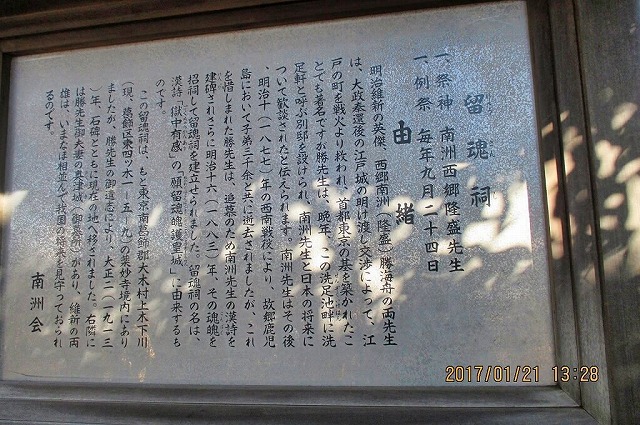 留魂祠
一、祭神 南洲西郷隆盛先生
一、例祭 毎年九月二十四日
由緒
明治維新の英傑、西郷南洲(隆盛)、勝海舟の両先生
は、大政奉還後の江戸城の明け渡し交渉によって、江
戸の町を戦火より救われ、首都東京の基を築かれたこ
とでも著名ですが勝先生は、晩年、この洗足池畔に洗
足軒と呼ぶ別邸を設けられ、南洲先生と日本の将来に
ついて歓談されたと伝えられます。南洲先生はその後
、明治十(一八七七)年の西南戦役により、故郷鹿児
島において子弟二千余と共に逝去されましたが、これ
を惜しまれた勝先生は、追慕のため南洲先生の漢詩を
建碑されさらに明治十六(一八八三)年、その魂魄を
招祠して留魂祠を建立せられました。留魂祠の名は、
漢詩「獄中有感」の「願留魂魄護皇城」に由来するも
のです。
この留魂祠は、もと東京南葛飾郡大木村上木下川
(現、葛飾区東四ツ木一-五-九)の薬妙寺境内にあり
ましたが、勝先生の御遺志により、大正二(一九一三
)年、石碑とともに現在の地へ移されました。右隣に
は勝先生御夫妻の奥津城(御墓所)があり、維新の両
雄は、いまなほ相並んで我国の将来を見守っておられ
るのです。
南洲会
2017/01/21 13:28